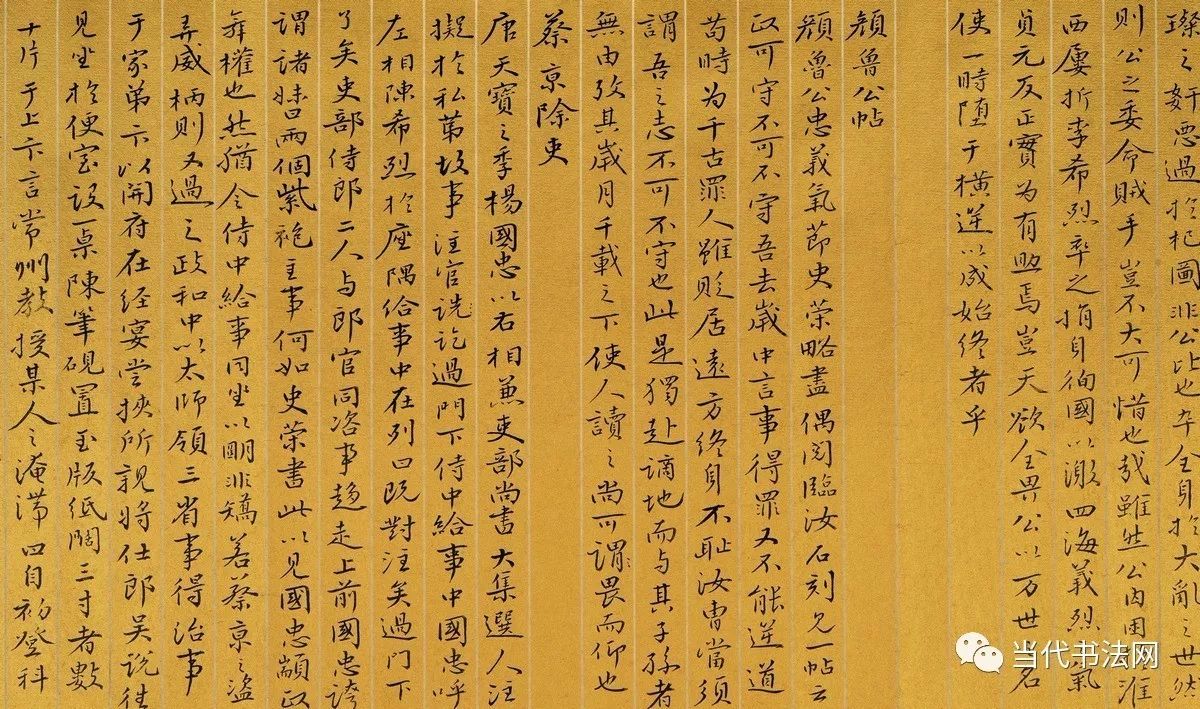 璨之奸惡過於杞圖非公比也卒全身於大亂之世然
則公之委命賊手豈不大可惜也哉雖然公囚困淮
西屢折李希烈卒之捐身徇國以激四海義烈之氣
貞元反正實為有助焉豈天欲全畀公以万世之名
使一時堕于橫逆以成始終者乎
顏魯公帖
顏魯公忠義氣節史荣略盡偶閱臨汝石刻見一帖云
政可守不可不守吾去歲中言事得罪又不能逆道
苟時为千古罪人雖貶居遠方終身不耻汝曹當須
謂吾之志不可不守也此是獨赴謫地而与其子孫者
無由攷其歲月千載之下使人讀之尚可謂畏而仰也
蔡京除吏
唐天寶之季楊國忠以右相兼吏部尚書大集選人注
擬於私第故事注官訖過門下侍中給事中國忠呼
左相陳希烈於座隅給事中在列曰既對注矣過門下
了矣吏部侍郎二人与郎官同咨事趨走上前國忠誇
謂諸妹曰兩個紫袍主事何如史荣書此以見國忠顓政
舞權也然猶令侍中給事同坐以明非矯若蔡京之盜
弄威柄則又過之政和中以太師領三省事得治事
于家弟卞以開府在经宴嘗挾所親將仕郎吴説往
見坐於便室設一桌陳筆硯置玉版纸闊三寸者數
十片于上卞言常州教授某人之淹滯曰自初登科
当代书法网